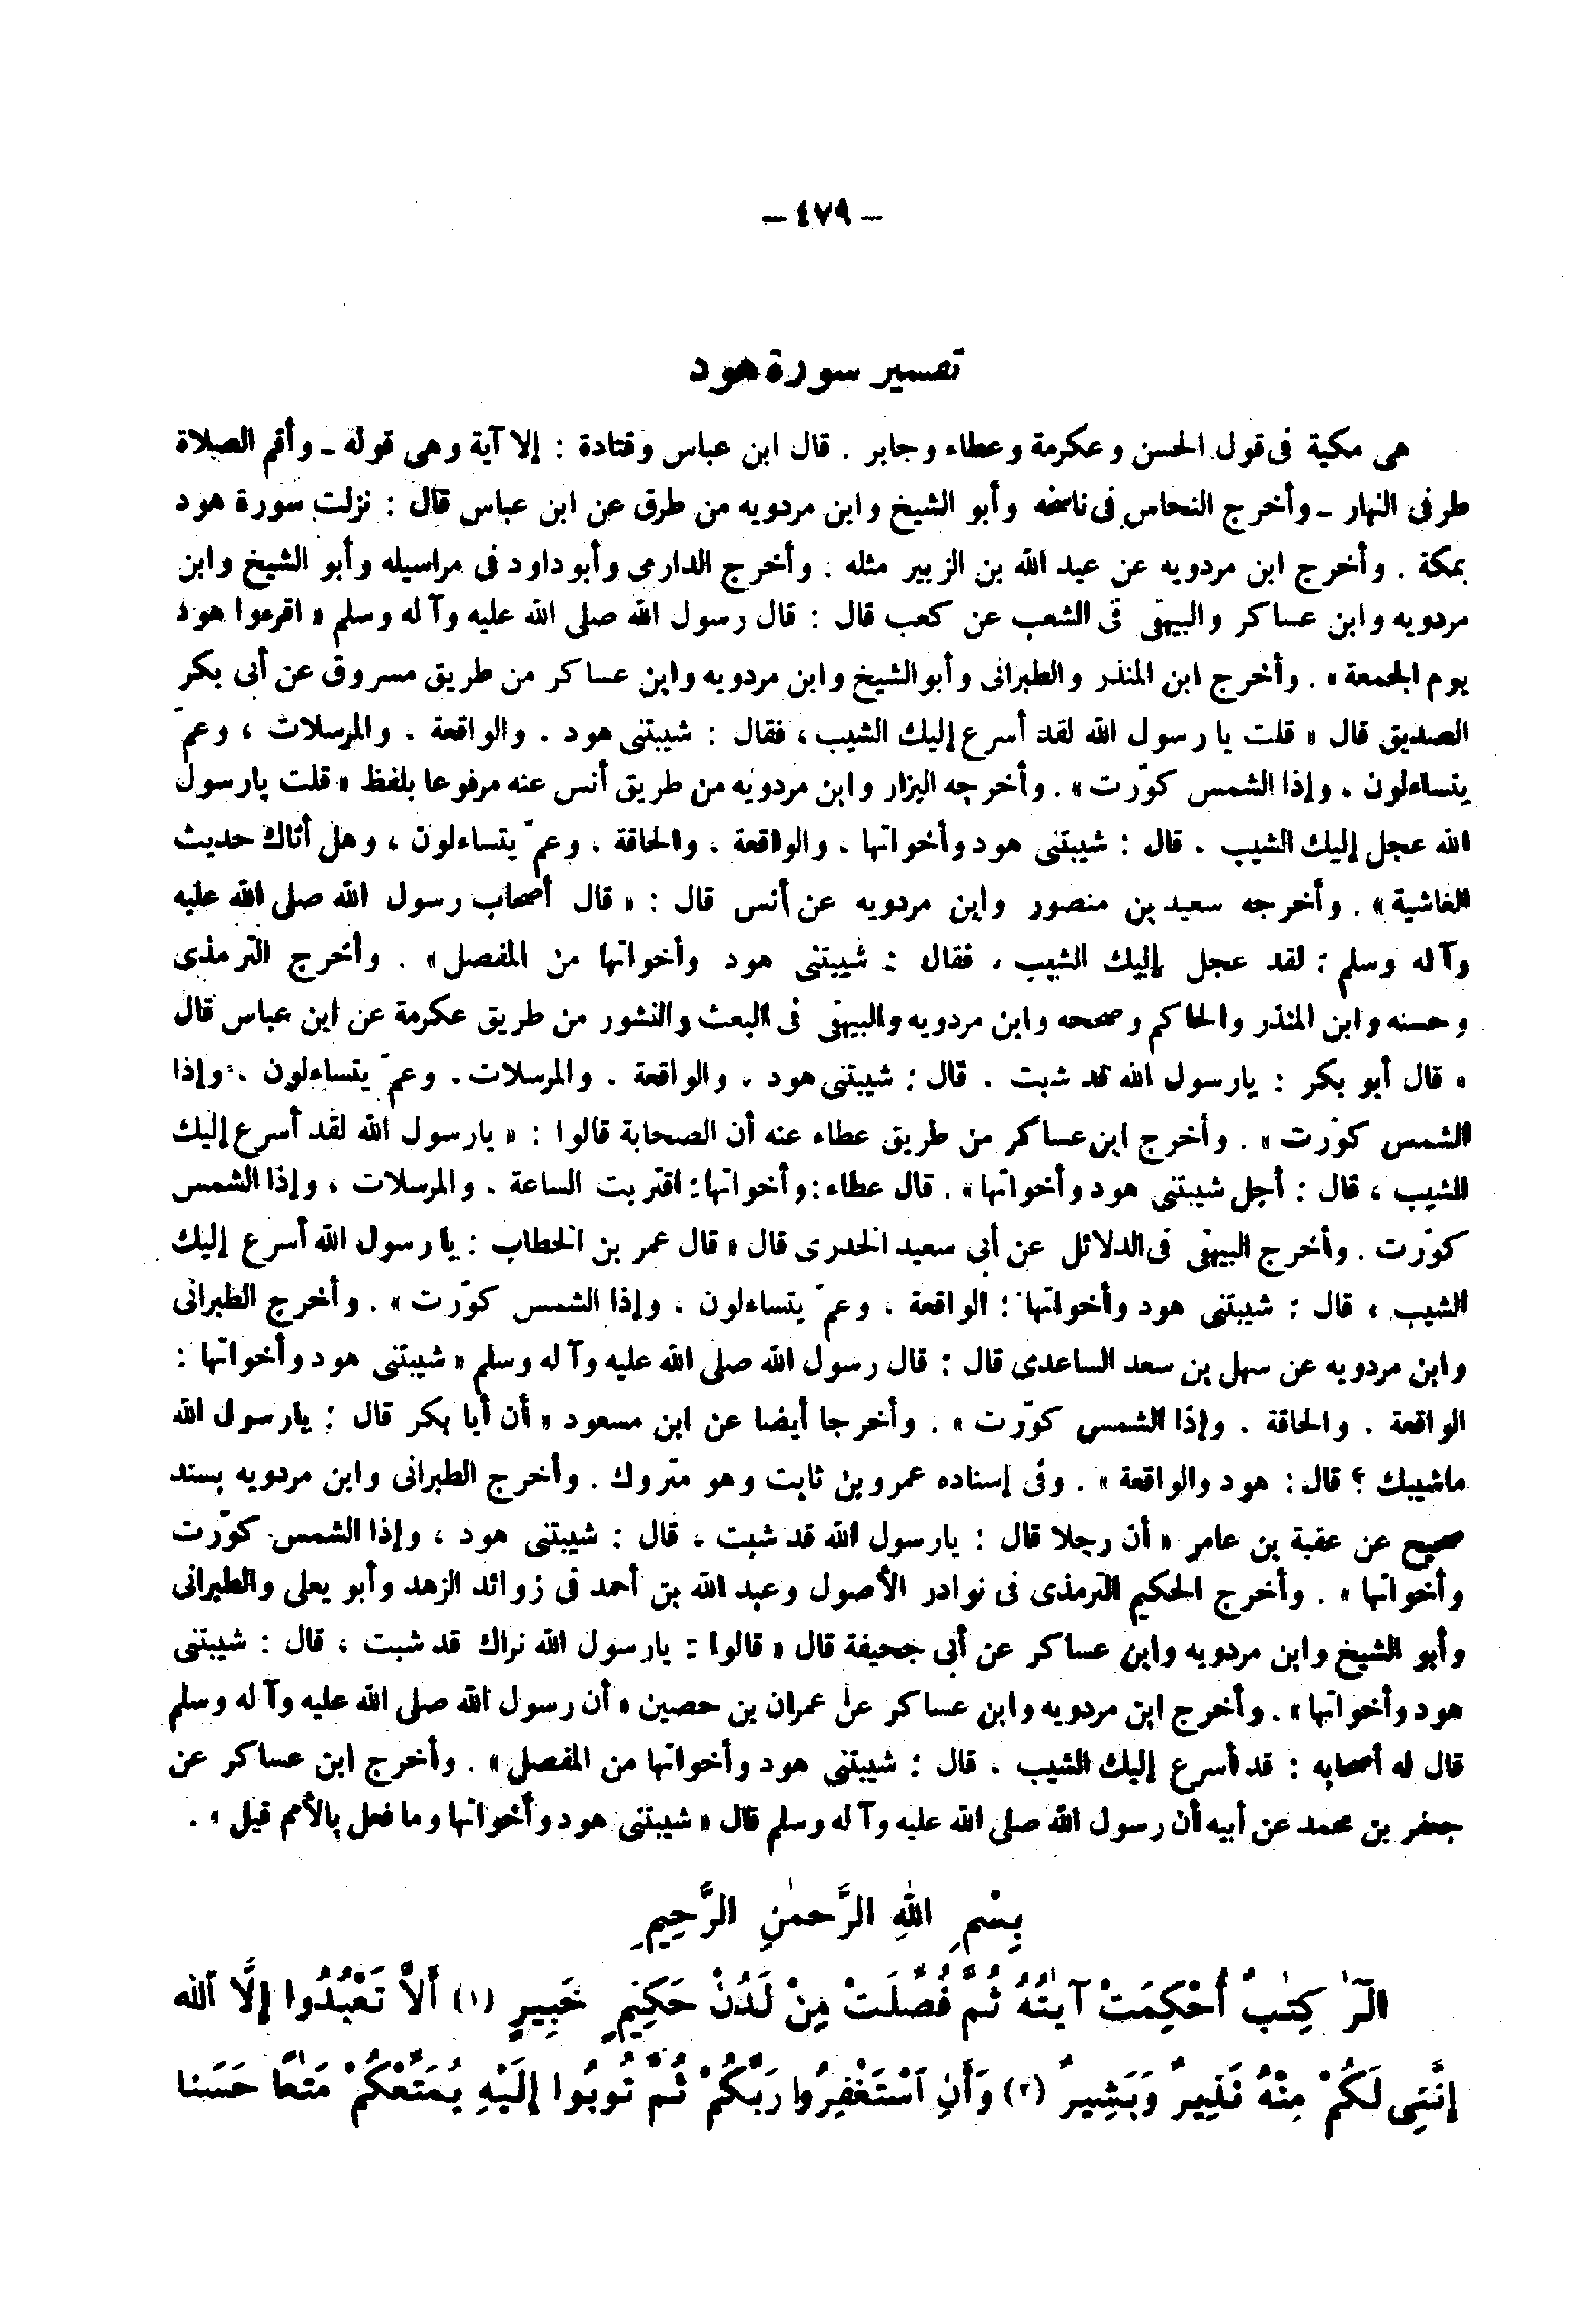 - ٤٧٩ -
تفسير سورة هود
هى مكية فى قول الحسن وعكرمة وعطاء وجابر . قال ابن عباس وقتادة : إلا آية وهى قوله - وأقم الصلاة
طرفى النهار - وأخرج النحاس فى ناسخه وأبو الشيخ وابن مردويه من طرق عن ابن عباس قال : نزلت سورة هود
بمكة . وأخرج ابن مردويه عن عبد الله بن الزبير مثله . وأخرج الدارمى وأبو داود فى مراسيله وأبو الشيخ وابن
مردويه وابن عساكر والبيهقى فى الشعب عن كعب قال : قال رسول الله صلى الله عليه وآله وسلم « اقرءوا هود
يوم الجمعة » . وأخرج ابن المنذر والطبرانى وأبو الشيخ وابن مردويه وابن عساكر من طريق مسروق عن أبى بكر
الصديق قال « قلت يا رسول الله لقد أسرع إليك الشيب ، فقال : شيبتنى هود ، والواقعة ، والمرسلات ، وعمّ
يتساءلون ، وإذا الشمس كوّرت » . وأخرجه البزار وابن مردويه من طريق أنس عنه مرفوعا بلفظ « قلت يارسول
الله عجل إليك الشيب ، قال : شيبتنى هود وأخواتها ، والواقعة ، والحاقة ، وعمّ يتساءلون ، وهل أتاك حديث
الغاشية » . وأخرجه سعيد بن منصور وابن مردويه عن أنس قال : « قال أصحاب رسول الله صلى الله عليه
وآله وسلم : لقد عجل إليك الشيب ، فقال : شيبتنى هود وأخواتها من المفصل » . وأخرج الترمذى
وحسنه وابن المنذر والحاكم وصححه وابن مردويه والبيهقى فى البعث والنشور من طريق عكرمة عن ابن عباس قال
« قال أبو بكر : يارسول الله قد شبت . قال : شيبتنى هود ، والواقعة ، والمرسلات ، وعمّ يتساءلون ، وإذا
الشمس كوّرت » . وأخرج ابن عساكر من طريق عطاء عنه أن الصحابة قالوا : « يارسول الله لقد أسرع إليك
الشيب ، قال : أجل شيبتنى هود وأخواتها » . قال عطاء : وأخواتها : اقتربت الساعة ، والمرسلات ، وإذا الشمس
كوّرت . وأخرج البيهقى فى الدلائل عن أبى سعيد الخدرى قال « قال عمر بن الخطاب : يا رسول الله أسرع إليك
الشيب ، قال : شيبتنى هود وأخواتها : الواقعة ، وعمّ يتساءلون ، وإذا الشمس كوّرت » . وأخرج الطبرانى
وابن مردويه عن سهل بن سعد الساعدى قال : قال رسول الله صلى الله عليه وآله وسلم « شيبتنى هود وأخواتها :
الواقعة ، والحاقة ، وإذا الشمس كوّرت » . وأخرجا أيضا عن ابن مسعود « أن أبا بكر قال : يارسول الله
ماشيبك ؟ قال : هود والواقعة » . وفى إسناده عمرو بن ثابت وهو متروك . وأخرج الطبرانى وابن مردويه بسند
صحيح عن عقبة بن عامر « أن رجلا قال : يارسول الله قد شبت ، قال : شيبتنى هود ، وإذا الشمس كوّرت
وأخواتها » . وأخرج الحكيم الترمذى فى نوادر الأصول وعبد الله بن أحمد فى زوائد الزهد وأبو يعلى والطبرانى
وأبو الشيخ وابن مردويه وابن عساكر عن أبى جحيفة قال « قالوا : يارسول الله نراك قد شبت ، قال : شيبتنى
هود وأخواتها » . وأخرج ابن مردويه وابن عساكر عن عمران بن حصين « أن رسول الله صلى الله عليه وآله وسلم
قال له أصحابه : قد أسرع إليك الشيب ، قال : شيبتنى هود وأخواتها من المفصل » . وأخرج ابن عساكر عن
جعفر بن محمد عن أبيه أن رسول الله صلى الله عليه وآله وسلم قال « شيبتنى هود وأخواتها وما فعل بالأمم قبلى » .
بِسْمِ اللهِ الرَّحمٰنِ الرَّحِيمِ
الٓرٰ كِتٰبٌ أُحْكِمَتْ آيٰتُهُ ثُمَّ فُصِّلَتْ مِنْ لَدُنْ حَكِيمٍ خَبِيرٍ (١) أَلاَّ تَعْبُدُوا إِلَّا ٱللهَ
إِنَّنِى لَكُمْ مِنْهُ نَذِيرٌ وَبَشِيرٌ (٢) وَأَنِ ٱسْتَغْفِرُوا رَبَّكُمْ ثُمَّ تُوبُوا إِلَيْهِ يُمَتِّعْكُمْ مَتٰعًا حَسَنا